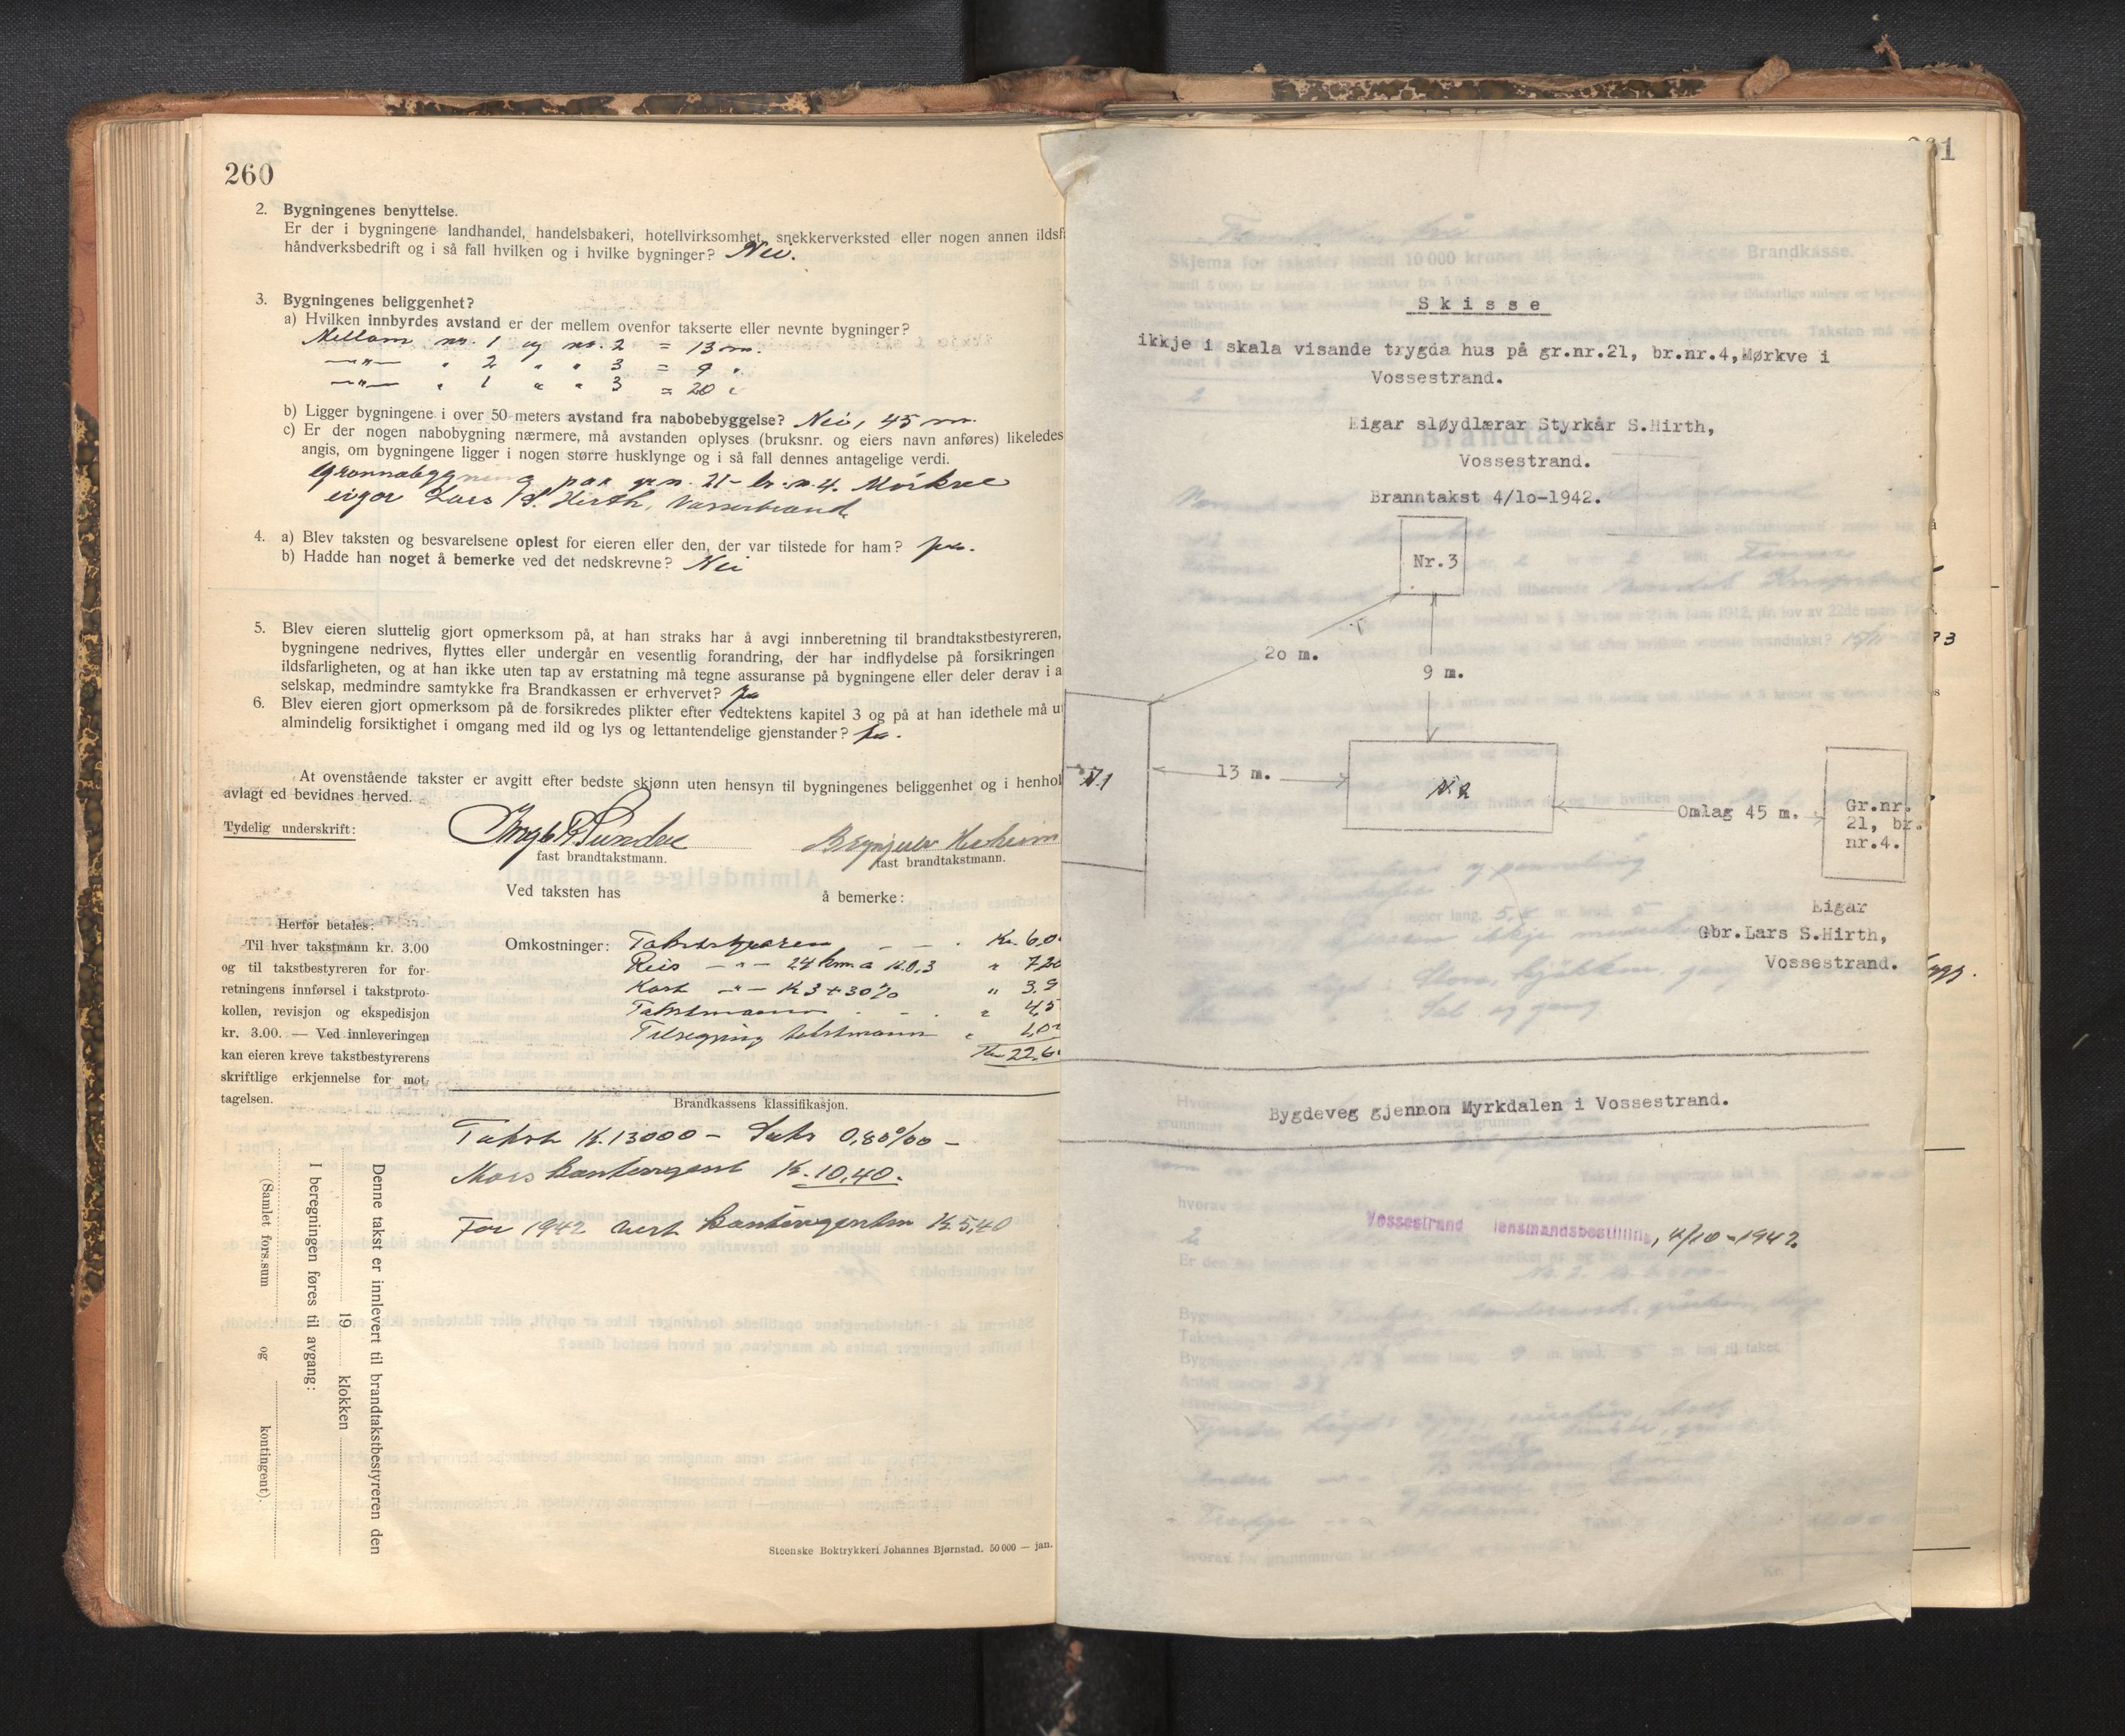 260
2. Bygningenes benyttelse.
Er der i bygningene landhandel, handelsbakeri, hotellvirksomhet, snekkerverksted eller nogen annen ildsf
håndverksbedrift og i så fall hvilken og i hvilke bygninger? Nei.
3. Bygningenes beliggenhet?
a) Hvilken innbyrdes avstand er der mellem ovenfor takserte eller nevnte bygninger?
Mellom nr. 1 og nr. 2 = 13 m.
—"— " 2 " " 3 = 9 "
—"— " 1 " " 3 = 20 "
b) Ligger bygningene i over 50 meters avstand fra nabobebyggelse? Nei, 45 m.
c) Er der nogen nabobygning nærmere, må avstanden oplyses (bruksnr. og eiers navn anføres) likeledes
angis, om bygningene ligger i nogen større husklynge og i så fall dennes antagelige verdi.
Grannabygning paa gr.n. 21 - br.n. 4. Mörkve
eigar Lars S. Hirth, Vossestrand
4. a) Blev taksten og besvarelsene oplest for eieren eller den, der var tilstede for ham? ja.
b) Hadde han noget å bemerke ved det nedskrevne? Nei
5. Blev eieren sluttelig gjort opmerksom på, at han straks har å avgi innberetning til brandtakstbestyreren,
bygningene nedrives, flyttes eller undergår en vesentlig forandring, der har indflydelse på forsikringen
ildsfarligheten, og at han ikke uten tap av erstatning må tegne assuranse på bygningene eller deler derav i a
selskap, medmindre samtykke fra Brandkassen er erhvervet? ja
6. Blev eieren gjort opmerksom på de forsikredes plikter efter vedtektens kapitel 3 og på at han idethele må u
almindelig forsiktighet i omgang med ild og lys og lettantendelige gjenstander? ja.
At ovenstående takster er avgitt efter bedste skjønn uten hensyn til bygningenes beliggenhet og i henhol
avlagt ed bevidnes herved.
Tydelig underskrift:
fast brandtakstmann.
fast brandtakstmann.
Ved taksten has å bemerke:
Herfor betales:
Til hver takstmann kr. 3.00
og til takstbestyreren for for-
retningens innførsel i takstproto-
kollen, revisjon og ekspedisjon
kr. 3.00. — Ved innleveringen
kan eieren kreve takstbestyrerens
skriftlige erkjennelse for mot-
tagelsen.
Omkostninger: Takstbestyraren — — . Kr. 6,0
Reis —"— 24 km a K 0,3 " 7,20
Kart —"— K 3 + 30% " 3.9
Takstmann . . . " 4,5
Tilsegjing takstmann " 1,0
Kr 22.6
Brandkassens klassifikasjon.
Takst K. 13000 - Sats 0,80‰ -
Aars kontingent K. 10,40.
For 1942 kontingenten K 5,40
Denne takst er innlevert til brandtakstbestyreren den
19 klokken
I beregningen føres til avgang:
(Samlet fors.sum og kontingent)
Steenske Boktrykkeri Johannes Bjørnstad. 50 000 — jan.
Skisse
ikkje i skala visande trygda hus på gr.nr.21, br.nr.4,Mørkve i
Vossestrand.
Eigar sløydlærar Styrkår S.Hirth,
Vossestrand.
Branntakst 4/10-1942.
Nr.3
20 m.
9 m.
N.1
13 m.
N.2
Omlag 45 m.
Gr.nr.
21, br.
nr.4.
Eigar
Gbr.Lars S.Hirth,
Vossestrand.
Bygdeveg gjennom Myrkdalen i Vossestrand.
Vossestrand lensmandsbestilling, 4/10-1942.